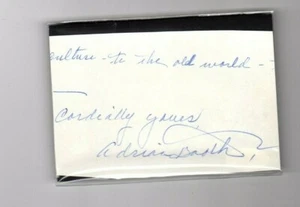 culture - to the old world -
Cordially yours
Adrian Booth,